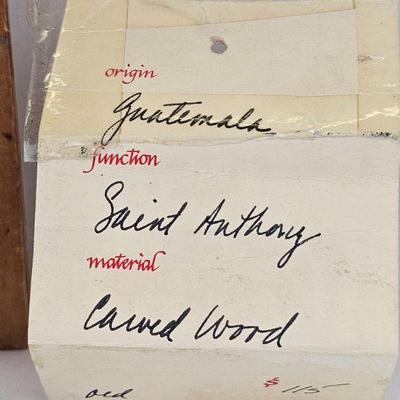 origin
Guatemala
function
Saint Anthony
material
Carved Wood
old $115